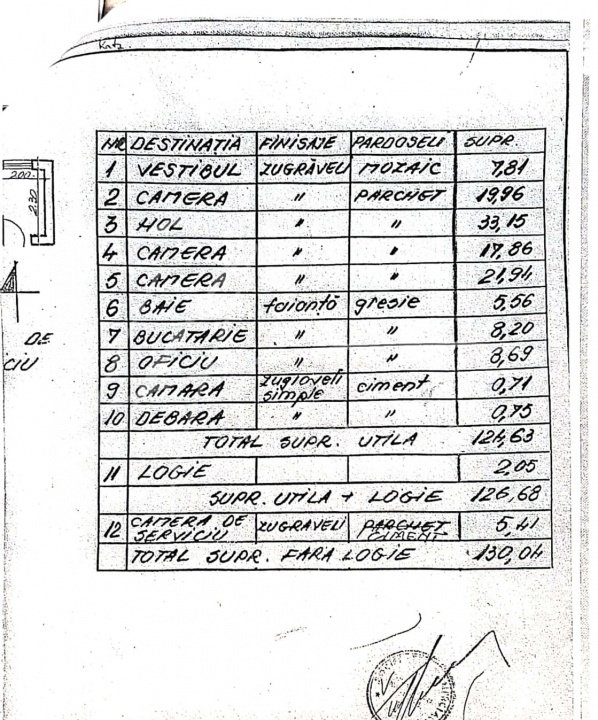 Katz.
200
2.30
DE
CIU
NR DESTINATIA FINISAJE PARDOSELI SUPR.
1 VESTIBUL ZUGRĂVELI MOZAIC 7,81
2 CAMERA " PARCHET 19,96
3 HOL " " 33,15
4 CAMERA " " 17,86
5 CAMERA " " 21,94
6 BAIE faianță gresie 5,56
7 BUCATARIE " " 8,20
8 OFICIU " " 8,69
9 CAMARA zugraveli simple ciment 0,71
10 DEBARA " " 0,75
TOTAL SUPR. UTILA 124,63
11 LOGIE 2,05
SUPR. UTILA + LOGIE 126,68
12 CAMERA DE SERVICIU ZUGRAVELI PARCHET CIMENT 5,41
TOTAL SUPR. FARA LOGIE 130,04